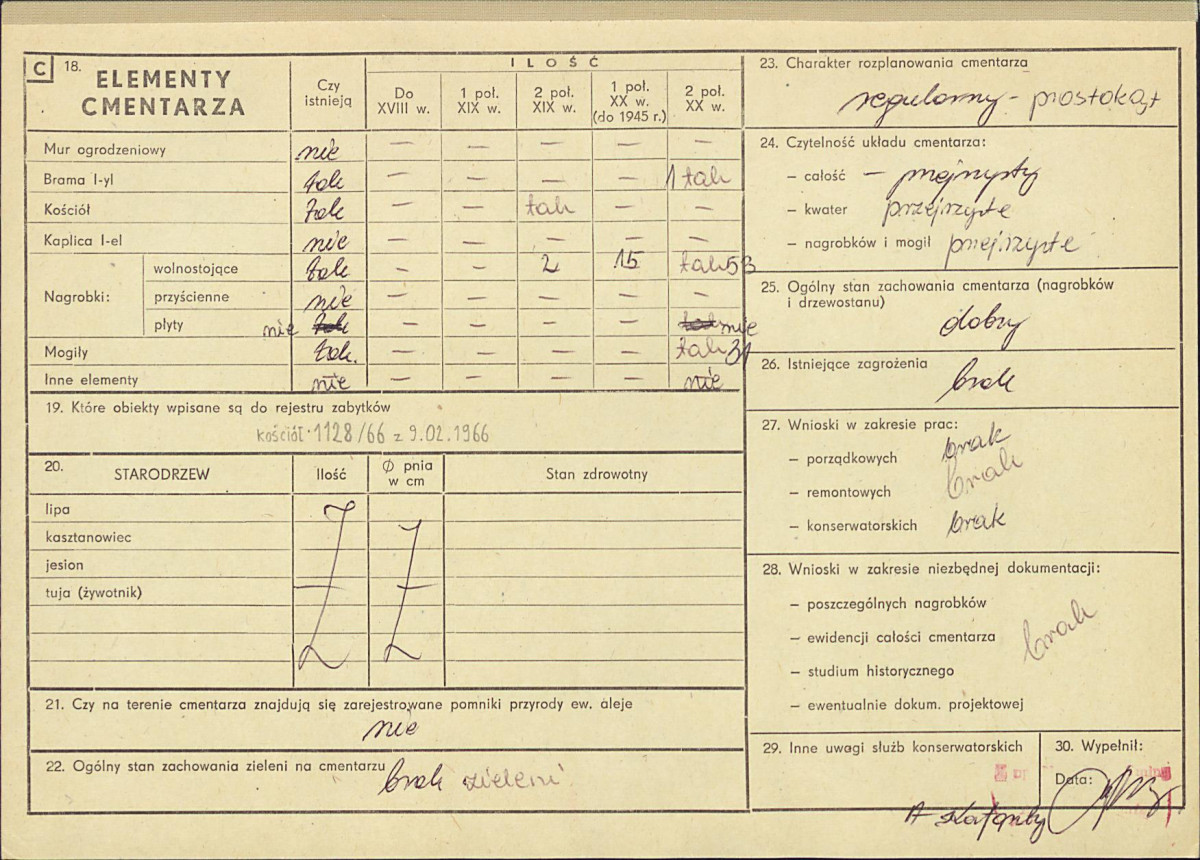 C 18. ELEMENTY CMENTARZA
Czy istnieją
ILOŚĆ
Do XVIII w.
1 poł. XIX w.
2 poł. XIX w.
1 poł. XX w. (do 1945 r.)
2 poł. XX w.
Mur ogrodzeniowy nie — — — — —
Brama I-yl tak — — — — 1 tak
Kościół tak — — tak — —
Kaplica I-el nie — — — — —
Nagrobki:
wolnostojące tak — — 2 15 tak 53
przyścienne nie — — — — —
płyty nie tak — — — — tak nie
Mogiły tak. — — — — tak 31
Inne elementy nie — — — — nie
19. Które obiekty wpisane są do rejestru zabytków
kościół 1128/66 z 9.02.1966
20. STARODRZEW
Ilość
Ø pnia w cm
Stan zdrowotny
lipa
kasztanowiec
jesion
tuja (żywotnik)
21. Czy na terenie cmentarza znajdują się zarejestrowane pomniki przyrody ew. aleje
nie
22. Ogólny stan zachowania zieleni na cmentarzu brak zieleni
23. Charakter rozplanowania cmentarza
regularny - prostokąt
24. Czytelność układu cmentarza:
– całość – przejrzysty
– kwater przejrzyste
– nagrobków i mogił przejrzyste
25. Ogólny stan zachowania cmentarza (nagrobków
i drzewostanu)
dobry
26. Istniejące zagrożenia
brak
27. Wnioski w zakresie prac:
– porządkowych brak
– remontowych brak
– konserwatorskich brak
28. Wnioski w zakresie niezbędnej dokumentacji:
– poszczególnych nagrobków
– ewidencji całości cmentarza brak
– studium historycznego
– ewentualnie dokum. projektowej
29. Inne uwagi służb konserwatorskich
30. Wypełnił:
Data: